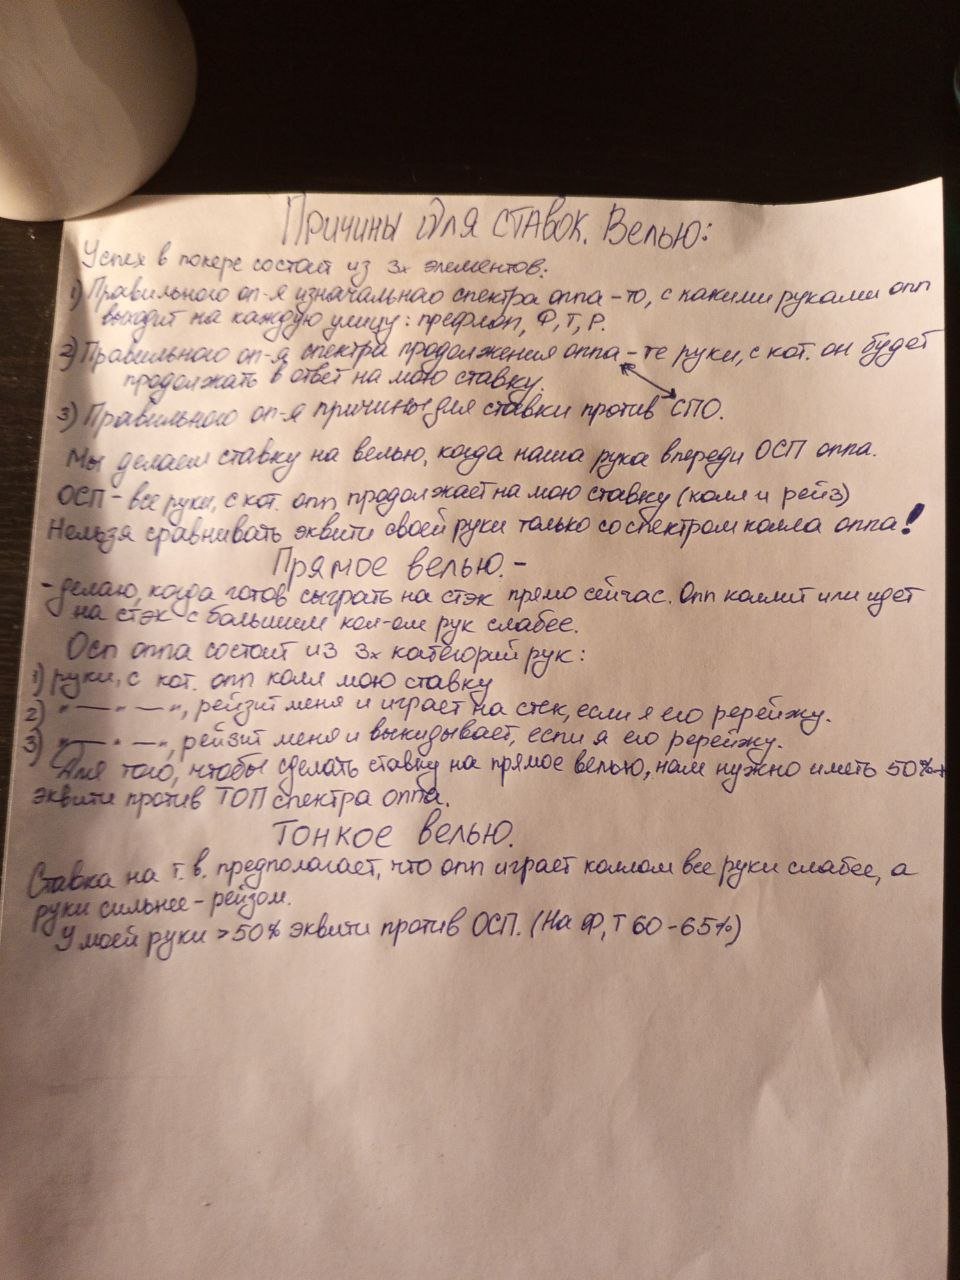 Причины для ставок. Велью:
Успех в покере состоит из 3х элементов:
1) Правильного оп-я изначального спектра оппа – то, с какими руками опп
выходит на каждую улицу: префлоп, Ф, Т, Р.
2) Правильного оп-я спектра продолжения оппа – те руки, с кот. он будет
продолжать в ответ на мою ставку.
3) Правильного оп-я причины для ставки против СПО.
Мы делаем ставку на велью, когда наша рука впереди ОСП оппа.
ОСП – все руки, с кот. опп продолжает на мою ставку (колл и рейз)
Нельзя сравнивать эквити своей руки только со спектром колла оппа!
Прямое велью. –
– делаю, когда готов сыграть на стэк прямо сейчас. Опп коллит или идет
на стэк с большим кол-ом рук слабее.
Осп оппа состоит из 3х категорий рук:
1) руки, с кот. опп колл мою ставку
2) –"– –"–, рейзит меня и играет на стек, если я его ререйжу.
3) –"– –"–, рейзит меня и выкидывает, если я его ререйжу.
Для того, чтобы сделать ставку на прямое велью, нам нужно иметь 50%+
эквити против ТОП спектра оппа.
Тонкое велью.
Ставка на т. в. предполагает, что опп играет коллом все руки слабее, а
руки сильнее – рейзом.
У моей руки >50% эквити против ОСП. (На Ф, Т 60-65%)